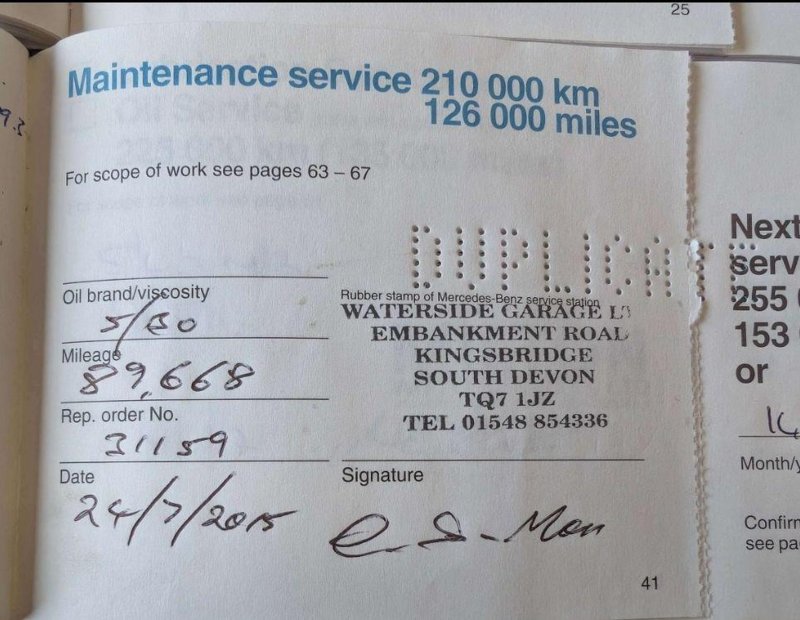 25
93
Maintenance service 210 000 km
126 000 miles
For scope of work see pages 63 – 67
DUPLICATE
Oil brand/viscosity
5/30
Rubber stamp of Mercedes-Benz service station
WATERSIDE GARAGE LT
EMBANKMENT ROAD
KINGSBRIDGE
SOUTH DEVON
TQ7 1JZ
TEL 01548 854336
Mileage
89,668
Rep. order No.
31159
Date
24/7/2015
Signature
41
Next
serv
255 0
153
or
Month/y
Confirm
see pa